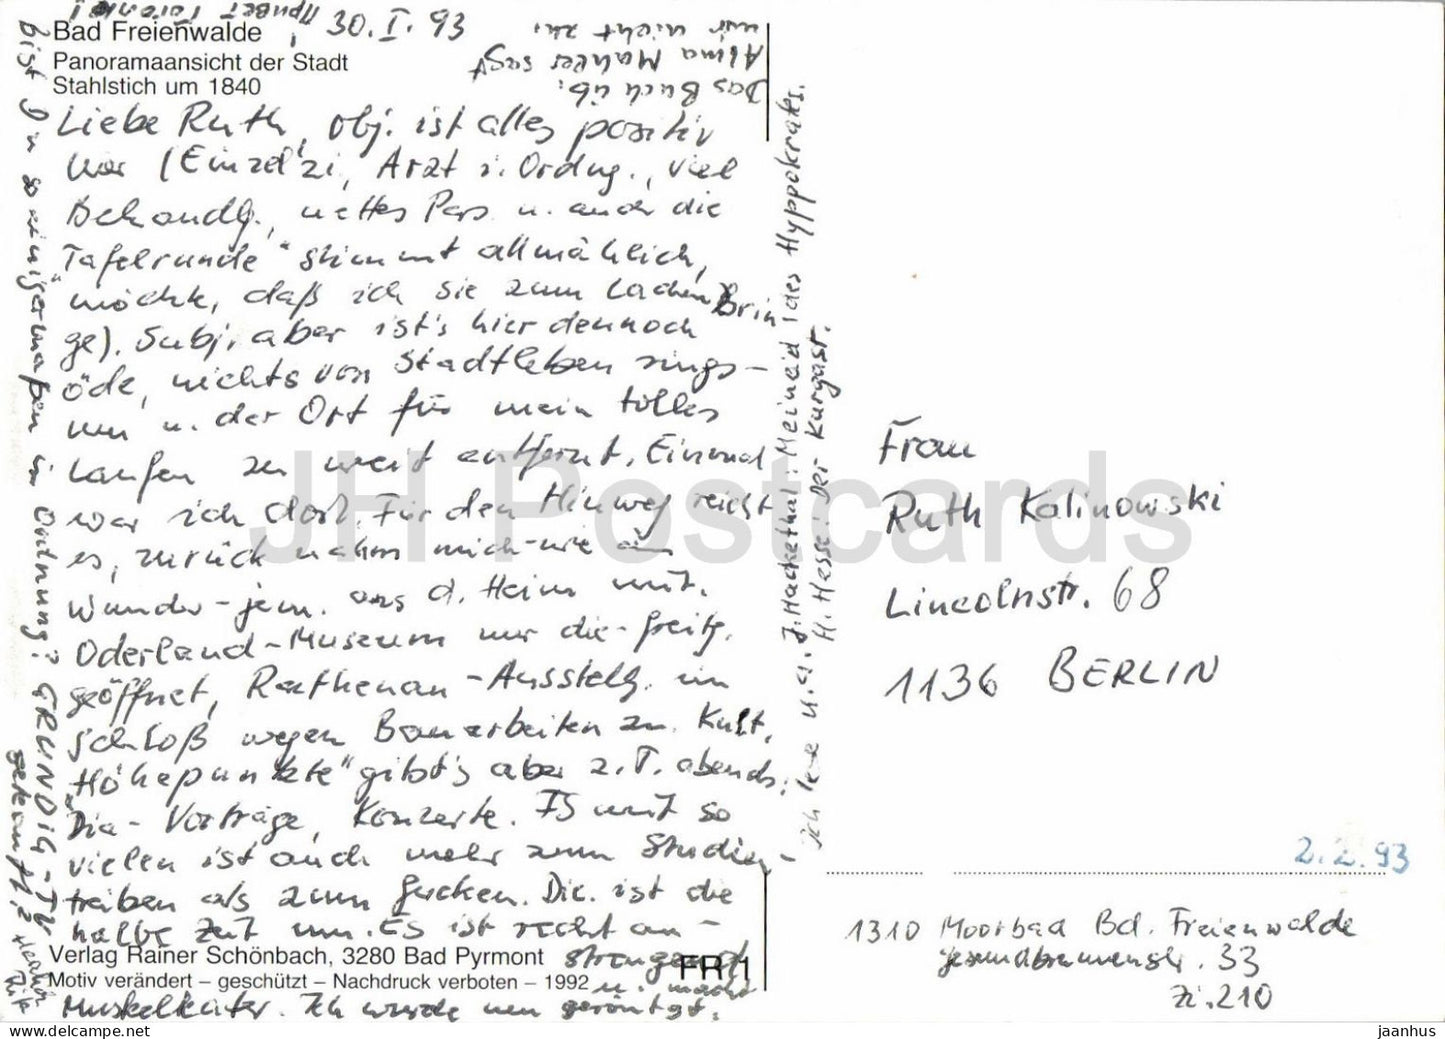 Привет Гаенке!
30.I.93
Bad Freienwalde
Panoramaansicht der Stadt
Stahlstich um 1840
Das Buch üb.
Alma Mahler sagt
mir nicht zu.
Liebe Ruth, obj. ist alles positiv
hier (Einzelzi, Arzt i. Ordng., viel
Behandlg., nettes Pers. u. auch die
"Tafelrunde" stimmt allmählich,
möchte, daß ich sie zum Lachen brin-
ge). Subj. aber ist's hier dennoch
öde, nichts von Stadtleben rings-
um u. der Ort für mein tolles
Laufen zu weit entfernt. Einmal
war ich dort. Für den Hinweg reicht
es, zurück nahm mich - wie ein
Wunder - jem. aus d. Heim mit.
Oderland-Museum nur die-freitg.
geöffnet, Rathenau-Ausstellg. im
Schloß wegen Bauarbeiten zu. Kult.
"Höhepunkte" gibt's aber z.T. abends:
Dia-Vorträge, Konzerte. TS mit so
vielen ist auch mehr zum Studien-
treiben als zum Gucken. Die. ist die
halbe Zeit um. Es ist recht an-
strengend
u. macht
Muskelkater. Ich wurde neu geröntgt.
bist Du so einigermaßen in Ordnung? GRUNDIG-TV
gekauft?
Verlag Rainer Schönbach, 3280 Bad Pyrmont
Motiv verändert – geschützt – Nachdruck verboten – 1992
FR 1
Ich lese u.a. J. Hackethal: Meineid des Hyppokrates.
H. Hesse: Der Kurgast.
Frau
Ruth Kalinowski
Lincolnstr. 68
1136 BERLIN
2.2.93
1310 Moorbad Bd. Freienwalde
Gesundbrunnenstr. 33
Zi. 210
JH Postcards
jaanhus